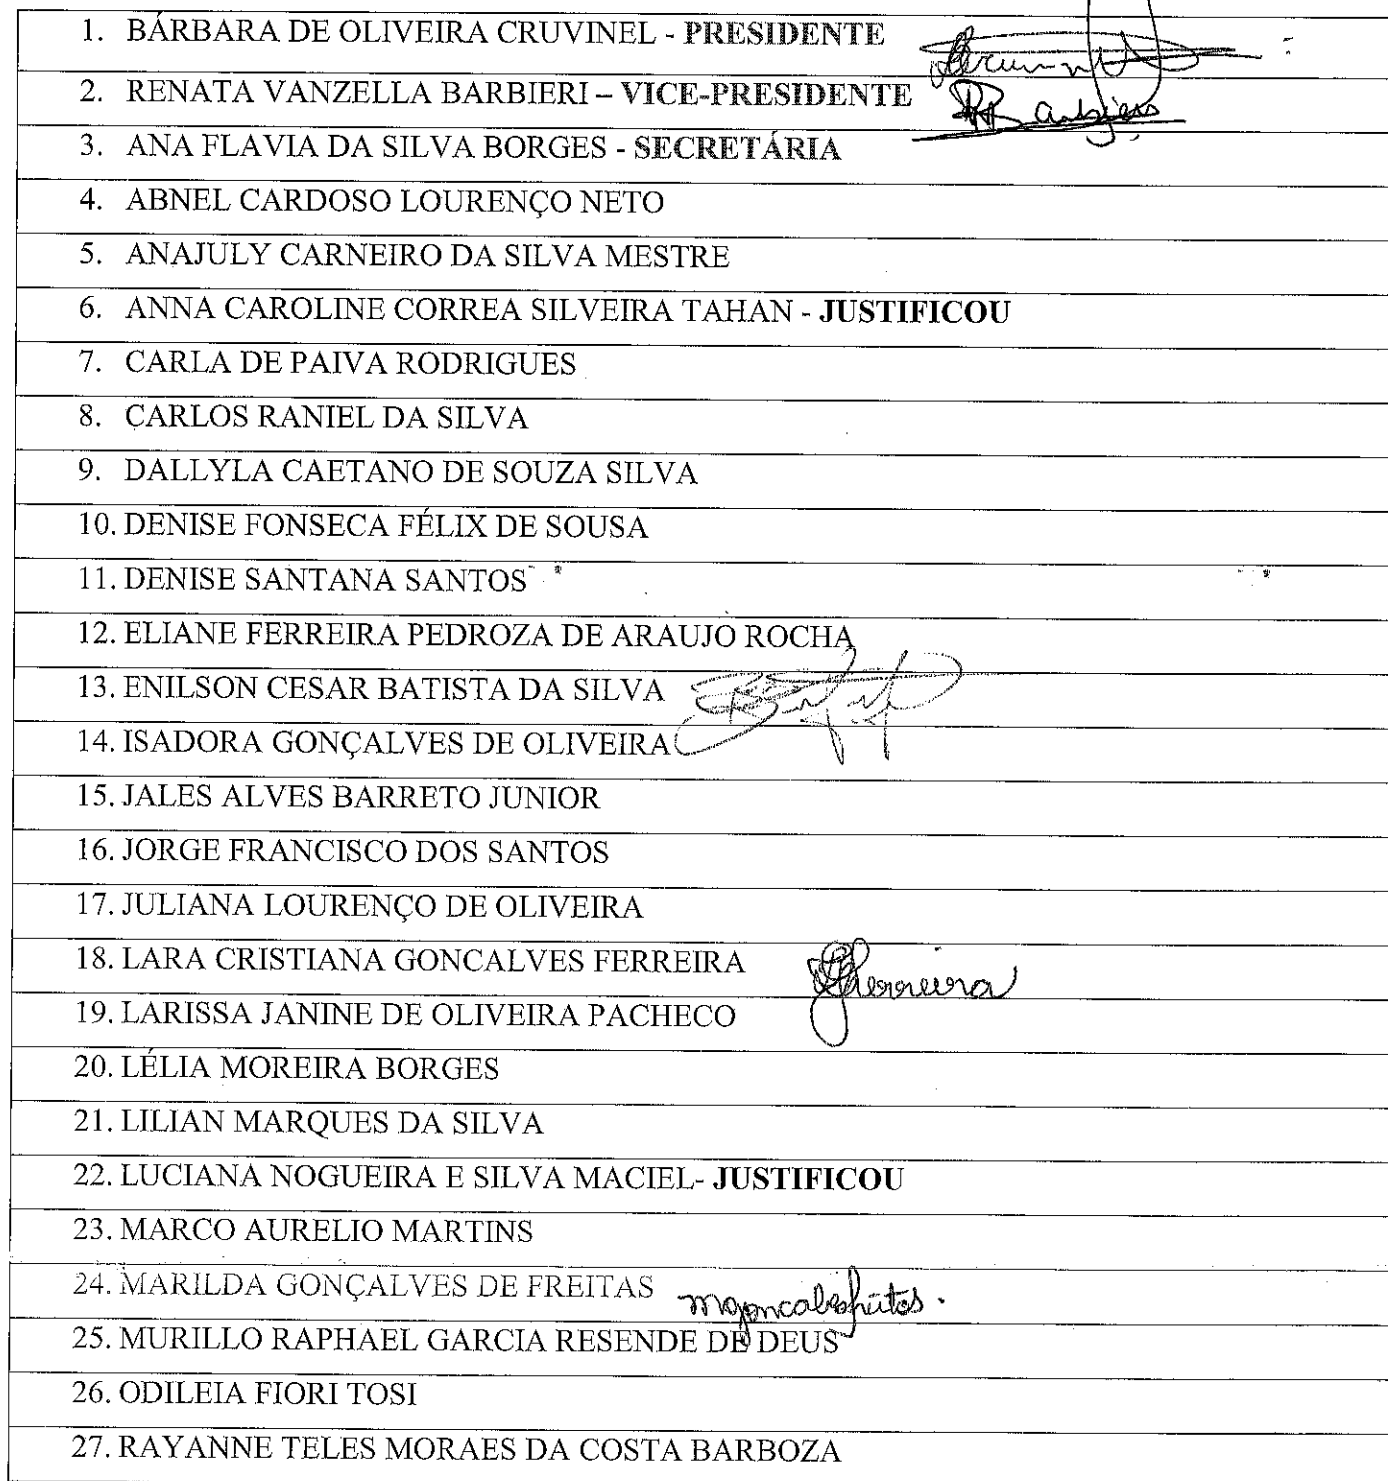 1. BÁRBARA DE OLIVEIRA CRUVINEL - PRESIDENTE
2. RENATA VANZELLA BARBIERI – VICE-PRESIDENTE
3. ANA FLAVIA DA SILVA BORGES - SECRETÁRIA
4. ABNEL CARDOSO LOURENÇO NETO
5. ANAJULY CARNEIRO DA SILVA MESTRE
6. ANNA CAROLINE CORREA SILVEIRA TAHAN - JUSTIFICOU
7. CARLA DE PAIVA RODRIGUES
8. CARLOS RANIEL DA SILVA
9. DALLYLA CAETANO DE SOUZA SILVA
10. DENISE FONSECA FÉLIX DE SOUSA
11. DENISE SANTANA SANTOS
12. ELIANE FERREIRA PEDROZA DE ARAUJO ROCHA
13. ENILSON CESAR BATISTA DA SILVA
14. ISADORA GONÇALVES DE OLIVEIRA
15. JALES ALVES BARRETO JUNIOR
16. JORGE FRANCISCO DOS SANTOS
17. JULIANA LOURENÇO DE OLIVEIRA
18. LARA CRISTIANA GONCALVES FERREIRA
19. LARISSA JANINE DE OLIVEIRA PACHECO
20. LÉLIA MOREIRA BORGES
21. LILIAN MARQUES DA SILVA
22. LUCIANA NOGUEIRA E SILVA MACIEL- JUSTIFICOU
23. MARCO AURELIO MARTINS
24. MARILDA GONÇALVES DE FREITAS
25. MURILLO RAPHAEL GARCIA RESENDE DE DEUS
26. ODILEIA FIORI TOSI
27. RAYANNE TELES MORAES DA COSTA BARBOZA